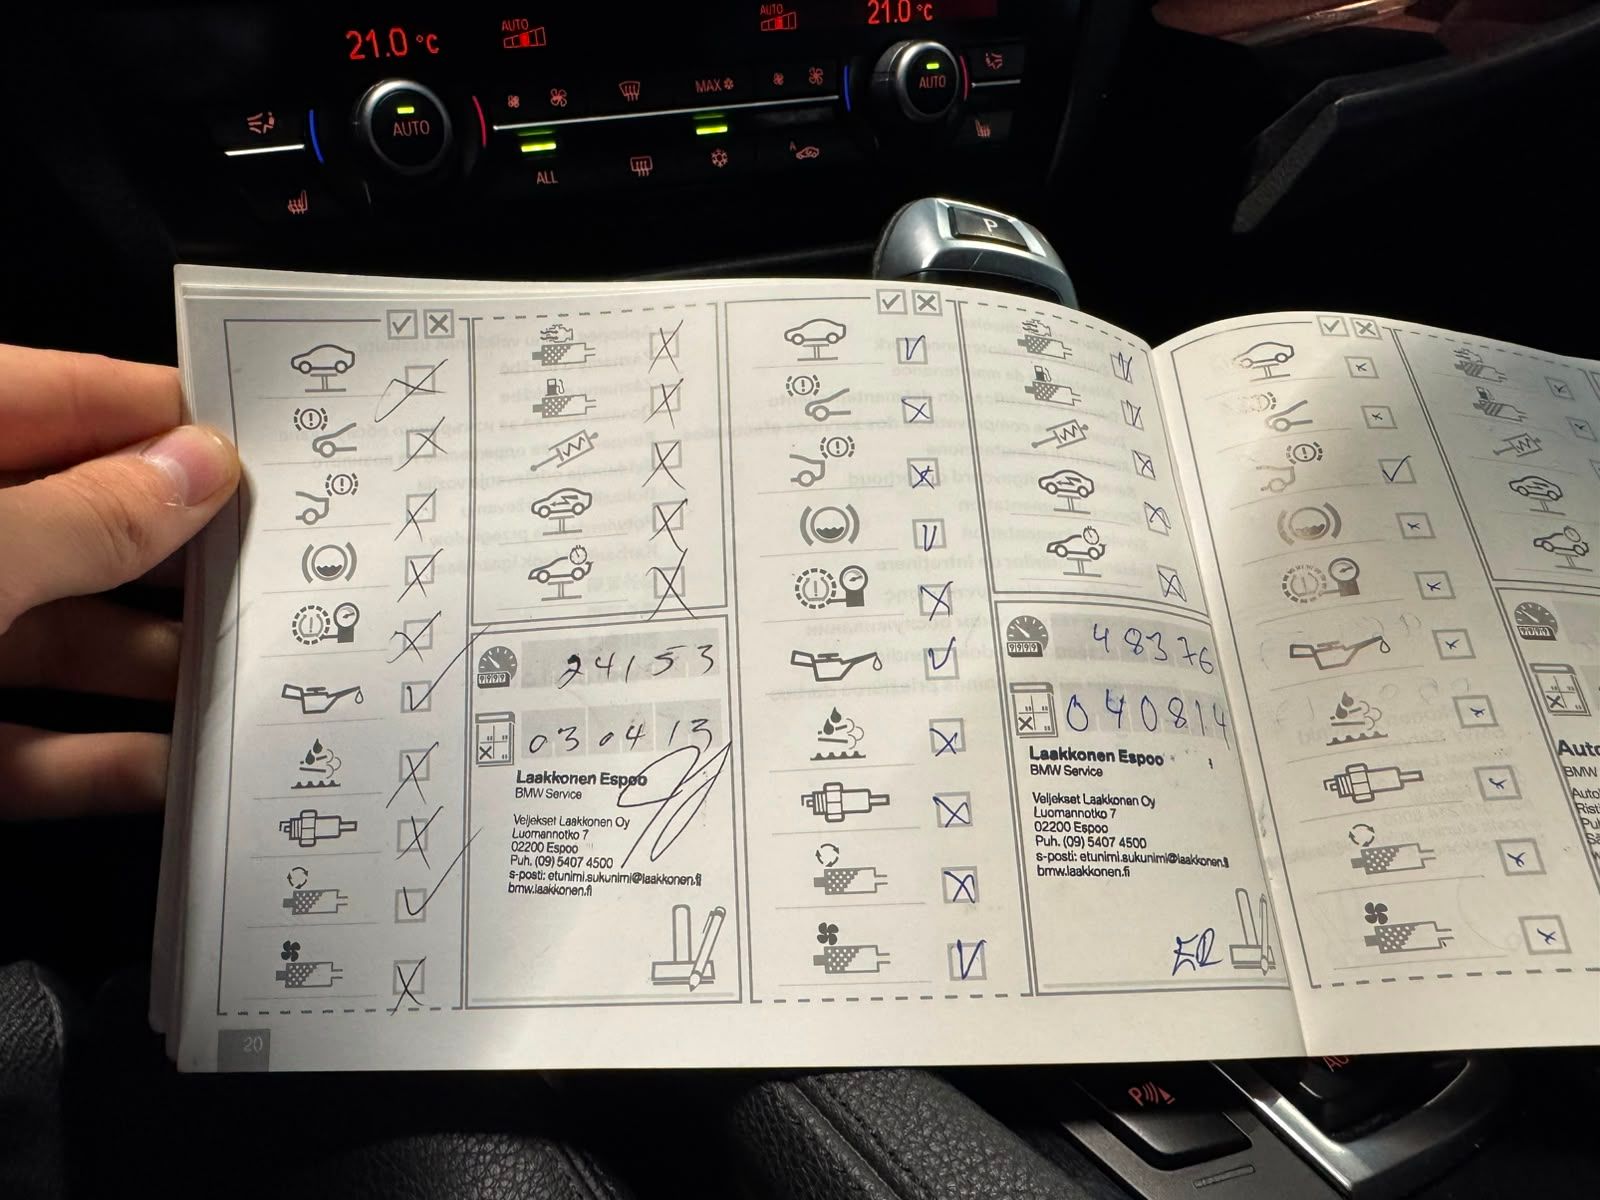 21.0 °C
AUTO
AUTO
21.0 °C
AUTO
MAX
AUTO
ALL
A
P
24153
03 04 13
Laakkonen Espoo
BMW Service
Veljekset Laakkonen Oy
Luomannotko 7
02200 Espoo
Puh. (09) 5407 4500
s-posti: etunimi.sukunimi@laakkonen.fi
bmw.laakkonen.fi
20
48376
040814
Laakkonen Espoo
BMW Service
Veljekset Laakkonen Oy
Luomannotko 7
02200 Espoo
Puh. (09) 5407 4500
s-posti: etunimi.sukunimi@laakkonen.fi
bmw.laakkonen.fi
ER
BMW
P